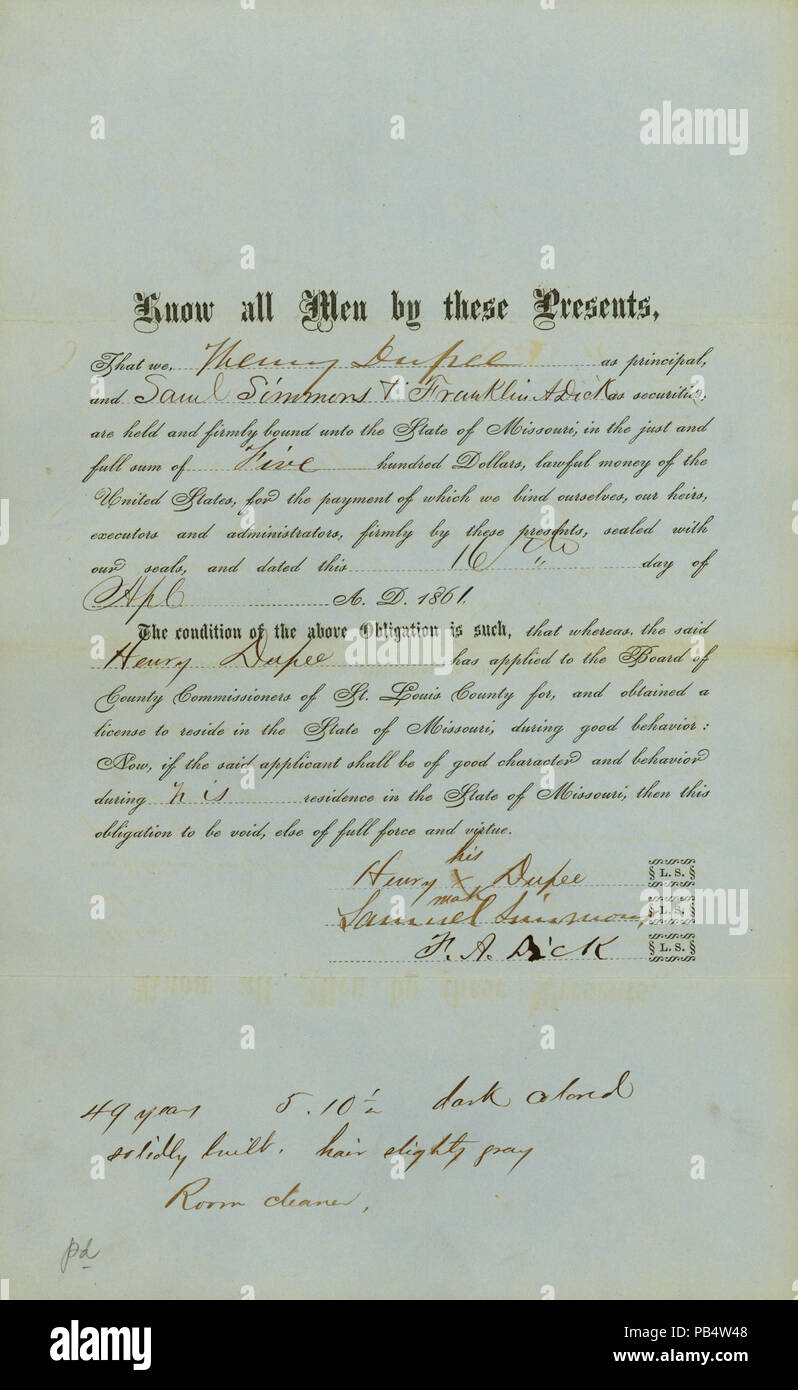 Know all Men by these Presents,
That we, Henry Dupee as principal,
and Saml Simmons & Franklin A Dick as securities,
are held and firmly bound unto the State of Missouri, in the just and
full sum of Five hundred Dollars, lawful money of the
United States, for the payment of which we bind ourselves, our heirs,
executors and administrators, firmly by these presents, sealed with
our seals, and dated this 16 day of
Apl A. D. 1861.
The condition of the above Obligation is such, that whereas, the said
Henry Dupee has applied to the Board of
County Commissioners of St. Louis County for, and obtained a
license to reside in the State of Missouri, during good behavior:
Now, if the said applicant shall be of good character and behavior
during his residence in the State of Missouri, then this
obligation to be void, else of full force and virtue.
his
Henry X Dupee L. S.
mark
Samuel Simmons L. S.
F. A. Dick L. S.
49 years 5.10 1/2 dark colored
solidly built. hair slightly gray
Room cleaner,
pd
alamy
Image ID: PB4W48
www.alamy.com